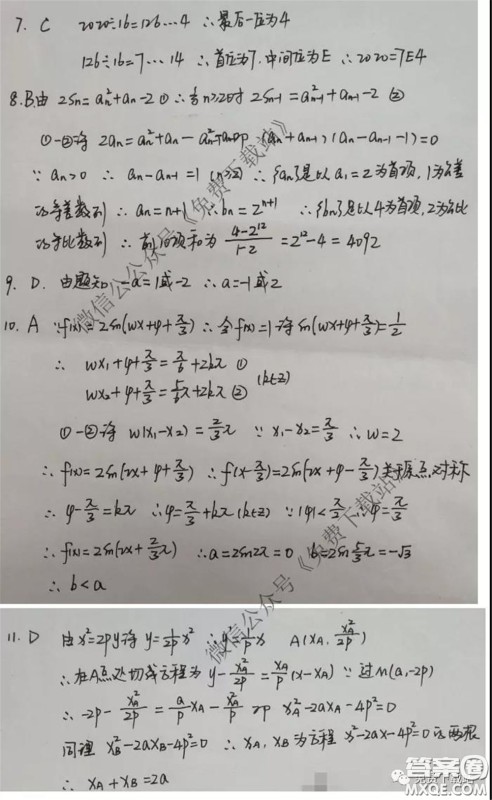 7. C 2020÷16=126…4 ∴最后一位为4
126÷16=7…14 ∴首位为7,中间位为E ∴2020=7E4
8.B.由 2Sn=an²+an-2① ∴当n≥2时 2Sn-1=an-1²+an-1-2 ②
①-②得 2an=an²+an-an-1²-an-1 即 (an+an-1)(an-an-1-1)=0
∵ an>0 ∴ an-an-1=1 (n≥2) ∴{an}是以a1=2为首项,1为公差
的等差数列 ∴ an=n+1 ∴bn=2^(n+1) ∴{bn}是以4为首项,2为公比
的等比数列 ∴ 前10项和为 (4-2^12)/(1-2) =2^12-4=4092
9. D. 由题知 -a=1或-2 ∴a=-1或2
10. A ∵f(x)=2sin(wx+φ+π/3) ∴令f(x)=1得sin(wx+φ+π/3)=1/2
∴ wx1+φ+π/3=π/6+2kπ ①
wx2+φ+π/3=5/6π+2kπ ② (k∈Z)
①-②得 w(x1-x2)=2/3π ∵ x1-x2=π/3 ∴w=2
∴f(x)=2sin(2x+φ+π/3) ∴f(x-π/3)=2sin(2x+φ-π/3)关于原点对称
∴ φ-π/3=kπ ∴φ=π/3+kπ(k∈Z) ∵|φ|<π/2 ∴φ=π/3
∴f(x)=2sin(2x+2/3π) ∴a=2sin2π=0 b=2sin5/3π=-√3
∴ b<a
11. D 由x²=2py得 y=1/2p x² ∴y'=1/p x A(xA, xA²/2p)
∴在A点处切线方程为 y-xA²/2p=xA/p(x-xA) ∵过M(a,-2p)
∴ -2p-xA²/2p=a/p xA-xA²/p 即 xA²-2axA-4p²=0
同理 xB²-2axB-4p²=0 ∴xA,xB为方程x²-2ax-4p²=0的两根
∴ xA+xB=2a
微信公众号《免费下载站》
微信公众号《免费下载站》
答案圈
MXQE.COM